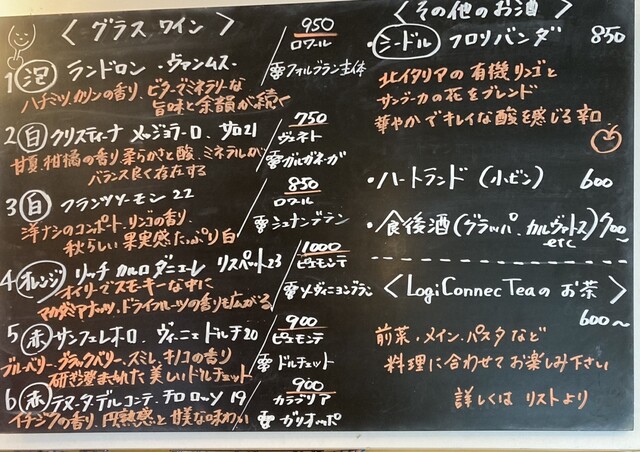 〈 グラス ワイン 〉
1 泡 ランドロン・ヴァンムス・
950
ロワール
フォルブラン主体
ハチミツ、カリンの香り、ビターでミネラリーな
旨味と余韻が続く
2 白 クリスティーナ メッジョラーロ、
21
750
ヴェネト
ガルガネーガ
甘夏、柑橘の香り柔らかさと酸、ミネラルが
バランス良く存在する
3 白 フランソワーモン 22
850
ロワール
シュナンブラン
洋ナシのコンポート、リンゴの香り、
秋らしい果実感たっぷり白
4 オレンジ リッチ カルロダニエーレ リスペット23
1000
ピエモンテ
ソヴィニョンブラン
オイリーでスモーキーな中に
マカダミアナッツ、ドライフルーツの香りも広がる
5 赤 サンフェレオロ、ヴィニェドルチ20
900
ピエモンテ
ドルチェット
ブルーベリー、ブラックベリー、スミレ、キノコの香り
研ぎ澄まされた美しいドルチェット
6 赤 テヌータデルコンテ、チロロッソ 19
900
カラブリア
ガリオッポ
イチジクの香り、円熟感と甘美な味わい
〈 その他のお酒 〉
・シードル フロリバンダ 850
北イタリアの有機リンゴと
サンブーカの花をブレンド
華やかでキレイな酸を感じる辛口
・ハートランド (小ビン) 600
・食後酒(グラッパ、カルヴァドス) 700〜
etc
〈 LogiConnecTeaの お茶 〉
600〜
前菜・メイン・パスタなど
料理に合わせてお楽しみ下さい
詳しくは リストより